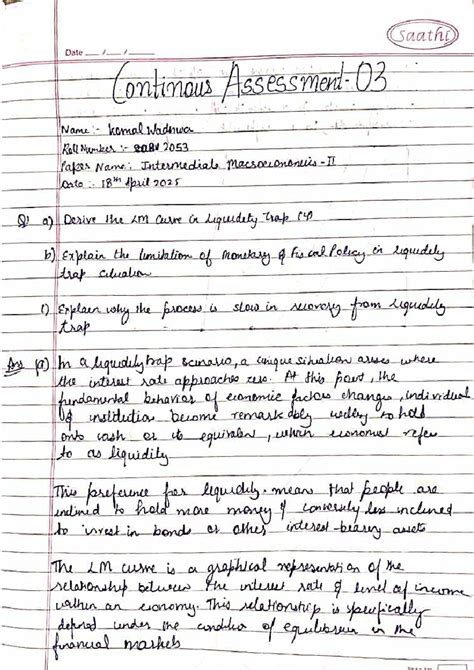 Saathi
Date __/__/__
Continous Assessment-03
Name :- Komal Wadhwa
Roll Number :- 2053
Paper Name: Intermediate Macroeconomics-II
Date :- 18th April 2025
Q1 a) Derive the LM Curve in liquidity Trap
b) Explain the limitation of Monetary & Fiscal Policy in liquidity
trap situation
c) Explain why the process is slow in recovery from liquidity
trap
Ans (a) In a liquidity trap scenario, a unique situation arises where
the interest rate approaches zero. At this point, the
fundamental behavior of economic factors changes, individual
& institution become remarkably willing to hold
onto cash or its equivalent, which economist refer
to as liquidity
This preference for liquidity mean that people are
inclined to hold more money & conversly less inclined
to invest in bonds or other interest-bearing assets
The LM curve is a graphical representation of the
relationship between the interest rate & level of income
within an economy. This relationship is specifically
defined under the condition of equilibrium in the
financial markets